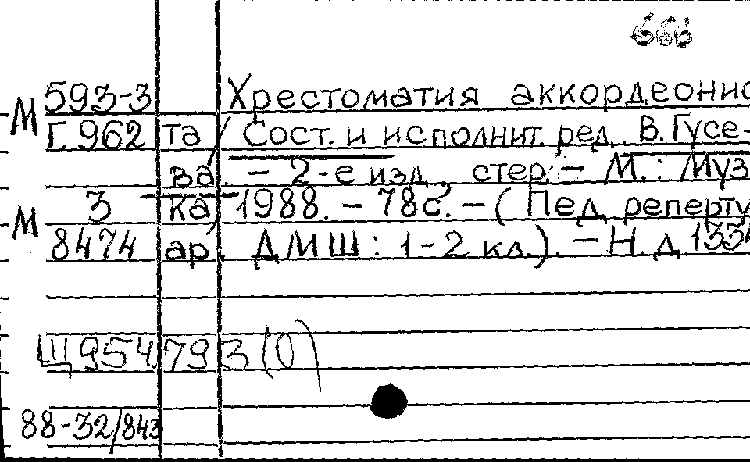 593-3 Хрестоматия аккордеонис
М Г.962 та / Сост. и исполнит. ред. В. Гусе-
ва. – 2-е изд., стер. – М. : Муз
М 3 ка, 1988. – 78с. – ( Пед. реперту
8474 ар. ДМШ : 1-2 кл.). – Н. д. 1334
Щ954.793(0)
88-32/843